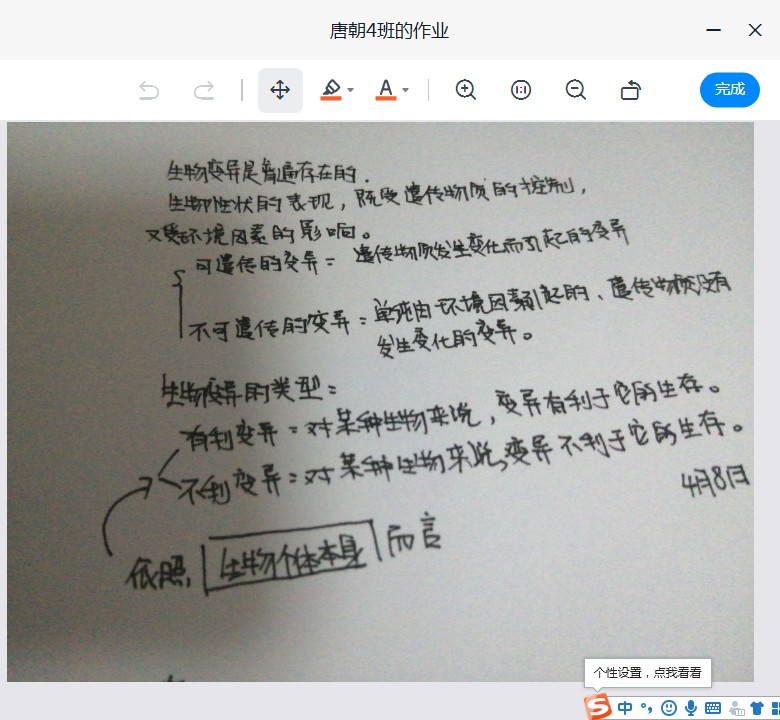 唐朝4班的作业
A
1:1
完成
生物变异是普遍存在的.
生物性状的表现，既受遗传物质的控制，
又受环境因素的影响。
可遗传的变异：遗传物质发生变化而引起的变异
不可遗传的变异：单纯由环境因素引起的、遗传物质没有
发生变化的变异。
生物变异的类型：
有利变异：对某种生物来说，变异有利于它的生存。
不利变异：对某种生物来说，变异不利于它的生存。
4月8日
依照 生物个体本身 而言
个性设置，点我看看
S 中